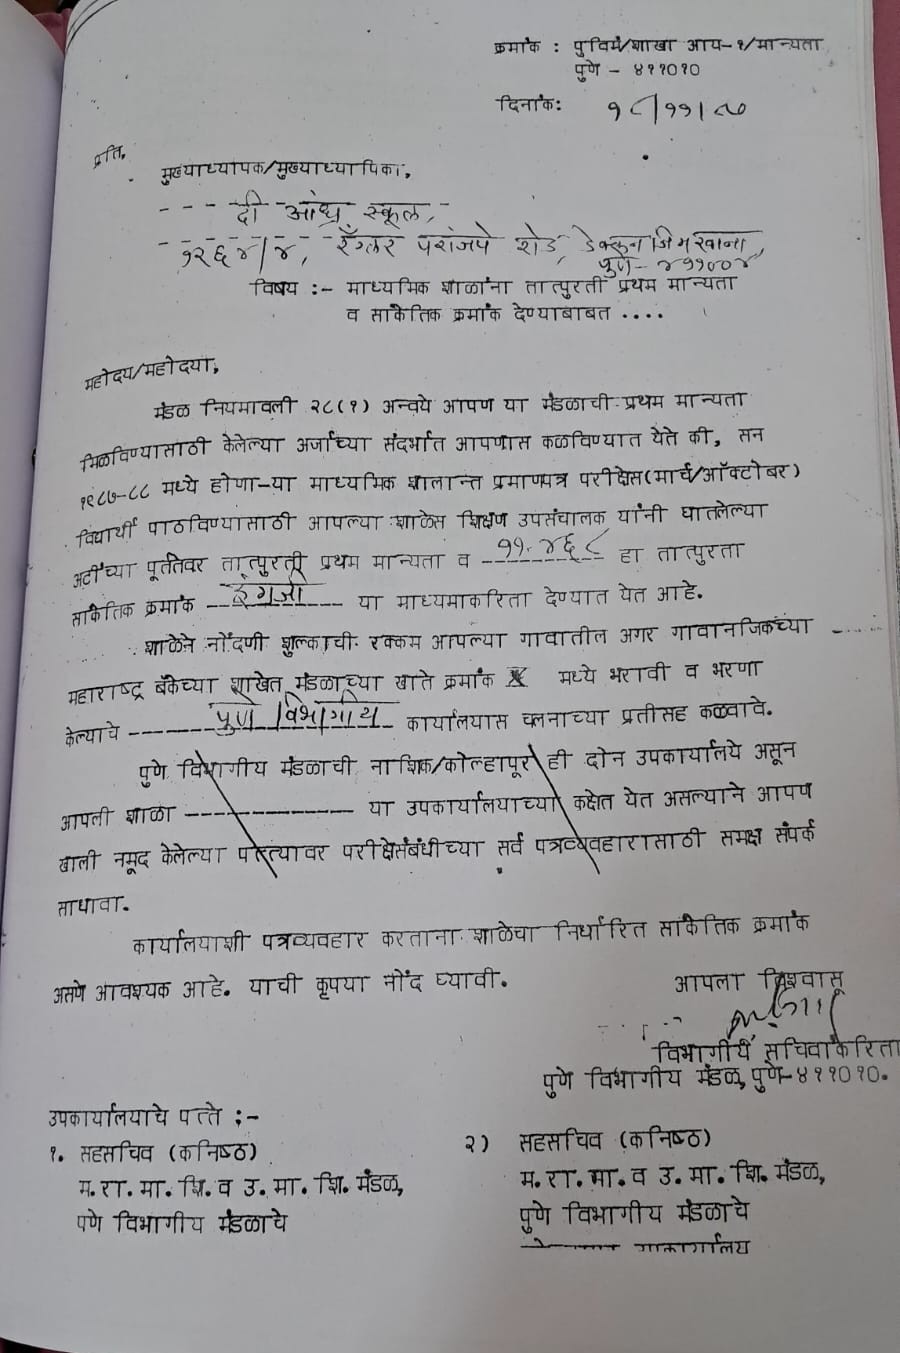 क्रमांक : पुविमं/शाखा आय-१/मान्यता
पुणे - ४११०१०
दिनांक: १८/११/८७
प्रति,
मुख्याध्यापक/मुख्याध्यापिका,
दी आंध्र स्कूल,
१२६४/४, रँग्लर परांजपे रोड, डेक्कन जिमखाना,
पुणे - ४११००४
विषय :- माध्यमिक शाळांना तात्पुरती प्रथम मान्यता
व सांकेतिक क्रमांक देण्याबाबत ....
महोदय/महोदया,
मंडळ नियमावली २८(१) अन्वये आपण या मंडळाची प्रथम मान्यता
मिळविण्यासाठी केलेल्या अर्जाच्या संदर्भात आपणास कळविण्यात येते की, सन
१९८७-८८ मध्ये होणा-या माध्यमिक शालान्त प्रमाणपत्र परीक्षेस(मार्च/ऑक्टोबर)
विद्यार्थी पाठविण्यासाठी आपल्या शाळेस शिक्षण उपसंचालक यांनी घातलेल्या
अटींच्या पूर्ततेवर तात्पुरती प्रथम मान्यता व ११.४६८ हा तात्पुरता
सांकेतिक क्रमांक इंग्रजी या माध्यमाकरिता देण्यात येत आहे.
शाळेने नोंदणी शुल्काची रक्कम आपल्या गावातील अगर गावानजिकच्या
महाराष्ट्र बँकेच्या शाखेत मंडळाच्या खाते क्रमांक मध्ये भरावी व भरणा
केल्याचे पुणे विभागीय कार्यालयास चलनाच्या प्रतीसह कळवावे.
पुणे विभागीय मंडळाची नाशिक/कोल्हापूर ही दोन उपकार्यालये असून
आपली शाळा ---------------- या उपकार्यालयाच्या कक्षेत येत असल्याने आपण
खाली नमूद केलेल्या पत्त्यावर परीक्षेसंबंधीच्या सर्व पत्रव्यवहारासाठी समक्ष संपर्क
साधावा.
कार्यालयाशी पत्रव्यवहार करताना शाळेचा निर्धारित सांकेतिक क्रमांक
असणे आवश्यक आहे. याची कृपया नोंद घ्यावी.
आपला विश्वासू
विभागीय सचिवांकरिता
पुणे विभागीय मंडळ, पुणे-४११०१०.
उपकार्यालयाचे पत्ते :-
१. सहसचिव (कनिष्ठ)
म.रा.मा.शि.व उ.मा.शि.मंडळ,
पणे विभागीय मंडळाचे
२) सहसचिव (कनिष्ठ)
म.रा.मा.व उ.मा.शि.मंडळ,
पुणे विभागीय मंडळाचे